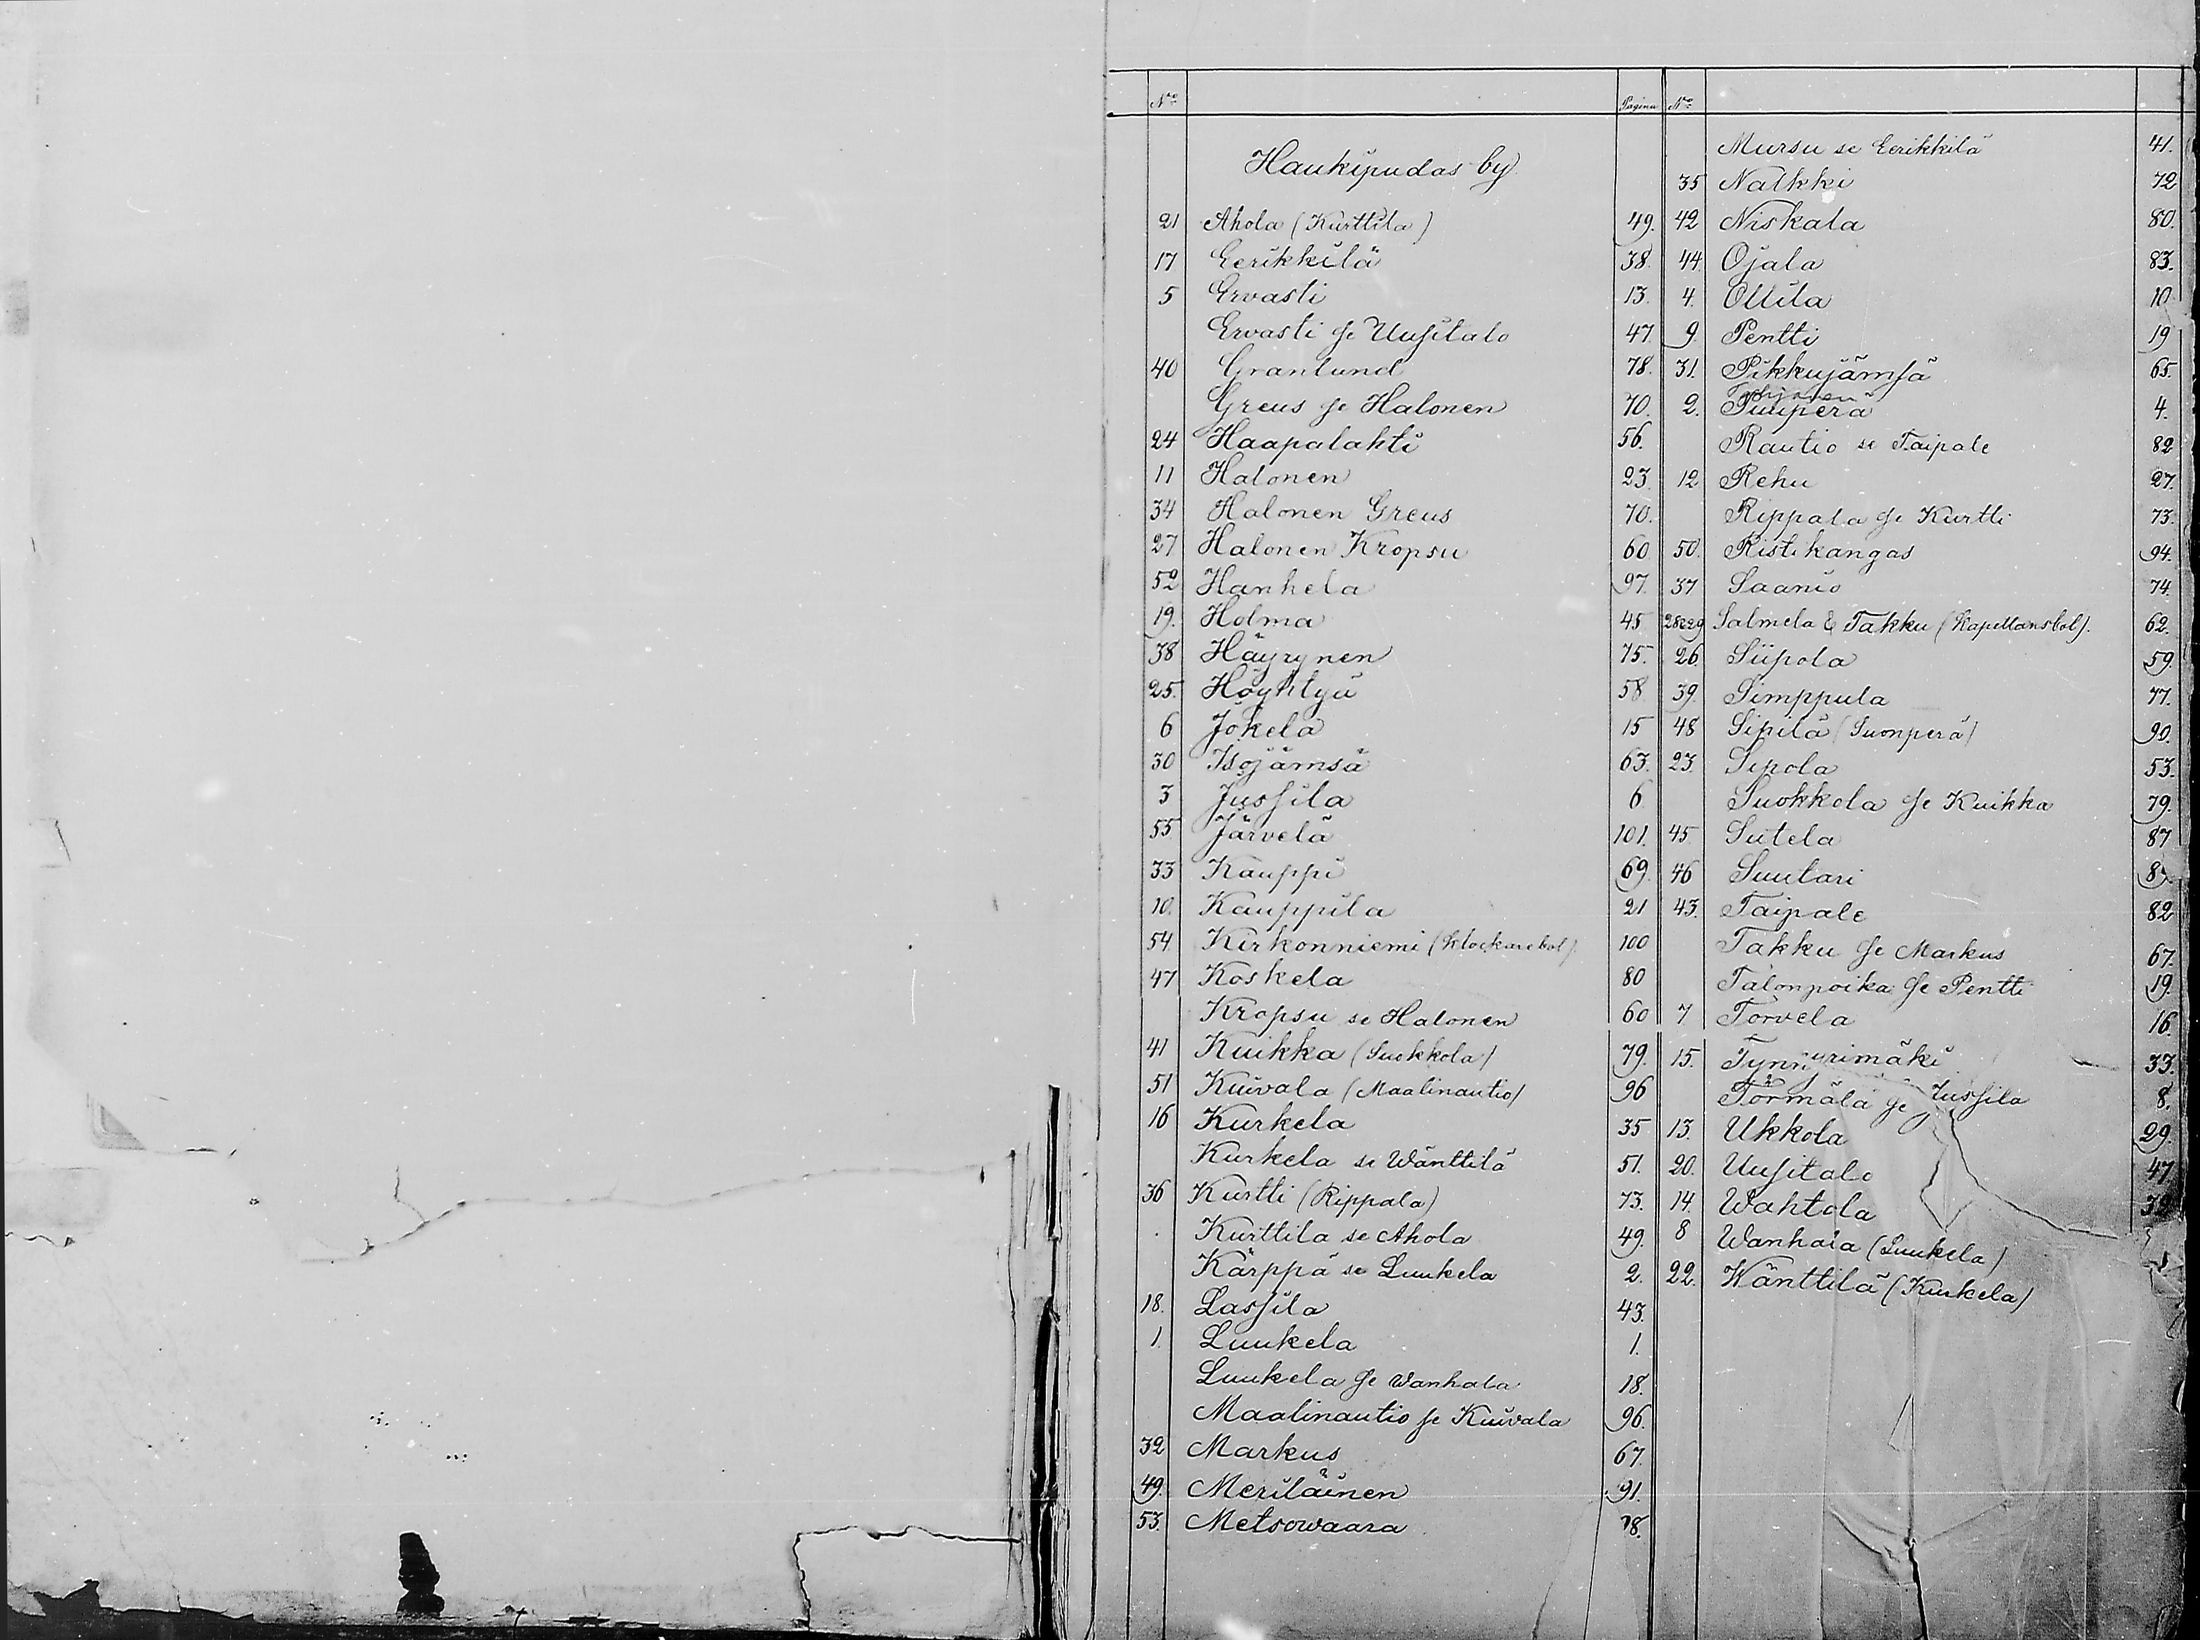 No Pagina No
Haukipudas by
21 Ahola (Kurttila) 49.
17 Eerikkilä 38.
5 Ervasti 13.
Ervasti se Uusitalo 47.
40 Granlund 78.
Greus se Halonen 70.
24 Haapalahti 56.
11 Halonen 23.
34 Halonen Greus 70.
27 Halonen Kropsu 60
52 Hanhela 97.
19. Holma 45
38 Häyrynen 75.
25. Höyhtyä 58
6 Jokela 15
30 Isojämsä 63.
3 Jussila 6
55 Järvelä 101.
33 Kauppi 69.
10. Kauppila 21
54 Kirkonniemi (Klockarebol). 100
47 Koskela 80
Kropsu se Halonen 60
41 Kuikka (Suokkola) 79.
51 Kuivala (Maalinautio) 96
16 Kurkela 35
Kurkela se Wänttilä 51.
36 Kurtti (Rippala) 73.
Kurttila se Ahola 49.
Kärppä se Luukela 2.
18. Lassila 43.
1. Luukela 1.
Luukela se Wanhala 18.
Maalinautio se Kuivala 96.
32 Markus 67.
49. Meriläinen 91.
53. Metsowaara 98.
Mursu se Eerikkilä 41.
35 Natkki 72
42 Niskala 80.
44. Ojala 83.
4. Ollila 10
9. Pentti 19
31. Pikkujämsä 65.
2. Puuperä 4.
Rautio se Taipale 82
12 Rehu 27.
Rippala se Kurtti 73.
50. Ristikangas 94.
37 Saanio 74.
28&29 Salmela & Takku (Kapellansbol). 62.
26. Siipola 59.
39. Simppula 77.
48 Sipilä (Suonperä) 90.
23. Sipola 53.
Suokkola se Kuikka 79.
45 Sutela 87
46 Suutari
43. Taipale 82
Takku se Markus 67.
Talonpoika se Pentti 19.
7 Torvela 16.
15. Tynnyrimäki 33.
Törmälä se Jussila 8.
13. Ukkola 29.
20. Uusitalo 47
14. Wahtola
8 Wanhala (Luukela)
22. Wänttilä (Kurkela)